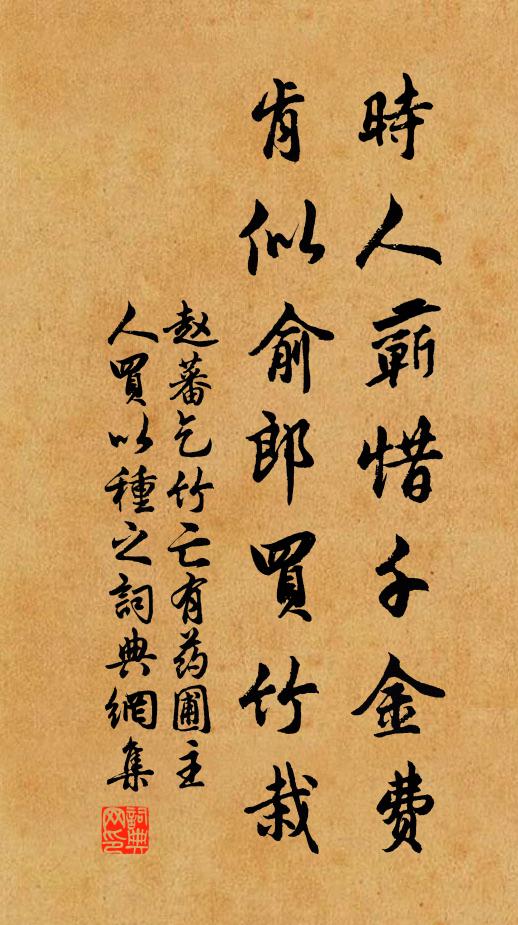 時人蘄惜千金費
肯似俞郎買竹栽
赵蕃乞竹亡有药圃主
人買以種之詞典網集
詞典网印